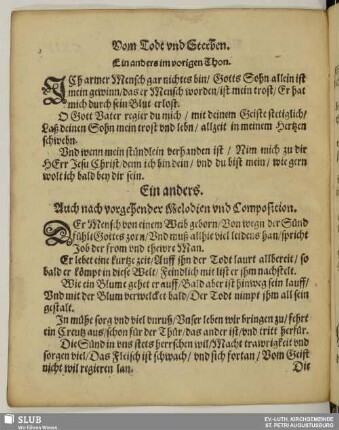 Vom Todt vnd Sterben.
Ein anders im vorigen Thon.
ICh armer Mensch gar nichtes bin / Gotts Sohn allein ist
mein gewinn / das er Mensch worden / ist mein trost / Er hat
mich durch sein Blut erlost.
O Gott Vater regier du mich / mit deinem Geiste stetiglich /
Laß deinen Sohn mein trost vnd lebn / allzeit in meinem Hertzen
schwebn.
Vnd wenn mein stündlein verhanden ist / Nim mich zu dir
HErr Jesu Christ / denn ich bin dein / vnd du bist mein / wie gern
wolt ich bald bey dir sein.
Ein anders.
Auch nach vorgehender Melodien vnd Composition.
DEr Mensch von einem Weib geborn / Von wegn der Sünd
fühlt Gottes zorn / Vnd muß allhie viel leidens han / spricht
Job der from vnd thewre Man.
Er lebet eine kurtze zeit / Auff jhn der Todt laurt allbereit / so
bald er kömpt in diese Welt / Feindlich mit list er jhm nachstelt.
Wie ein Blume gehet er auff / Bald aber ist hinweg sein lauff /
Vnd mit der Blum verwelcket bald / Der Todt nimpt jhm all sein
gestalt.
In mühe sorg vnd viel vnruh / Vnser leben wir bringen zu / fehrt
ein Creutz aus / schon für der Thür / das ander ist / vnd tritt herfür.
Die Sünd in vns stets herrschen wil / Macht trawrigkeit vnd
sorgen viel / Das Fleisch ist schwach / vnd sich fortan / Vom Geist
nicht wil regieren lan.
Die
SLUB
Wir führen Wissen.
EV.-LUTH. KIRCHGEMEINDE
ST. PETRI AUGUSTUSBURG